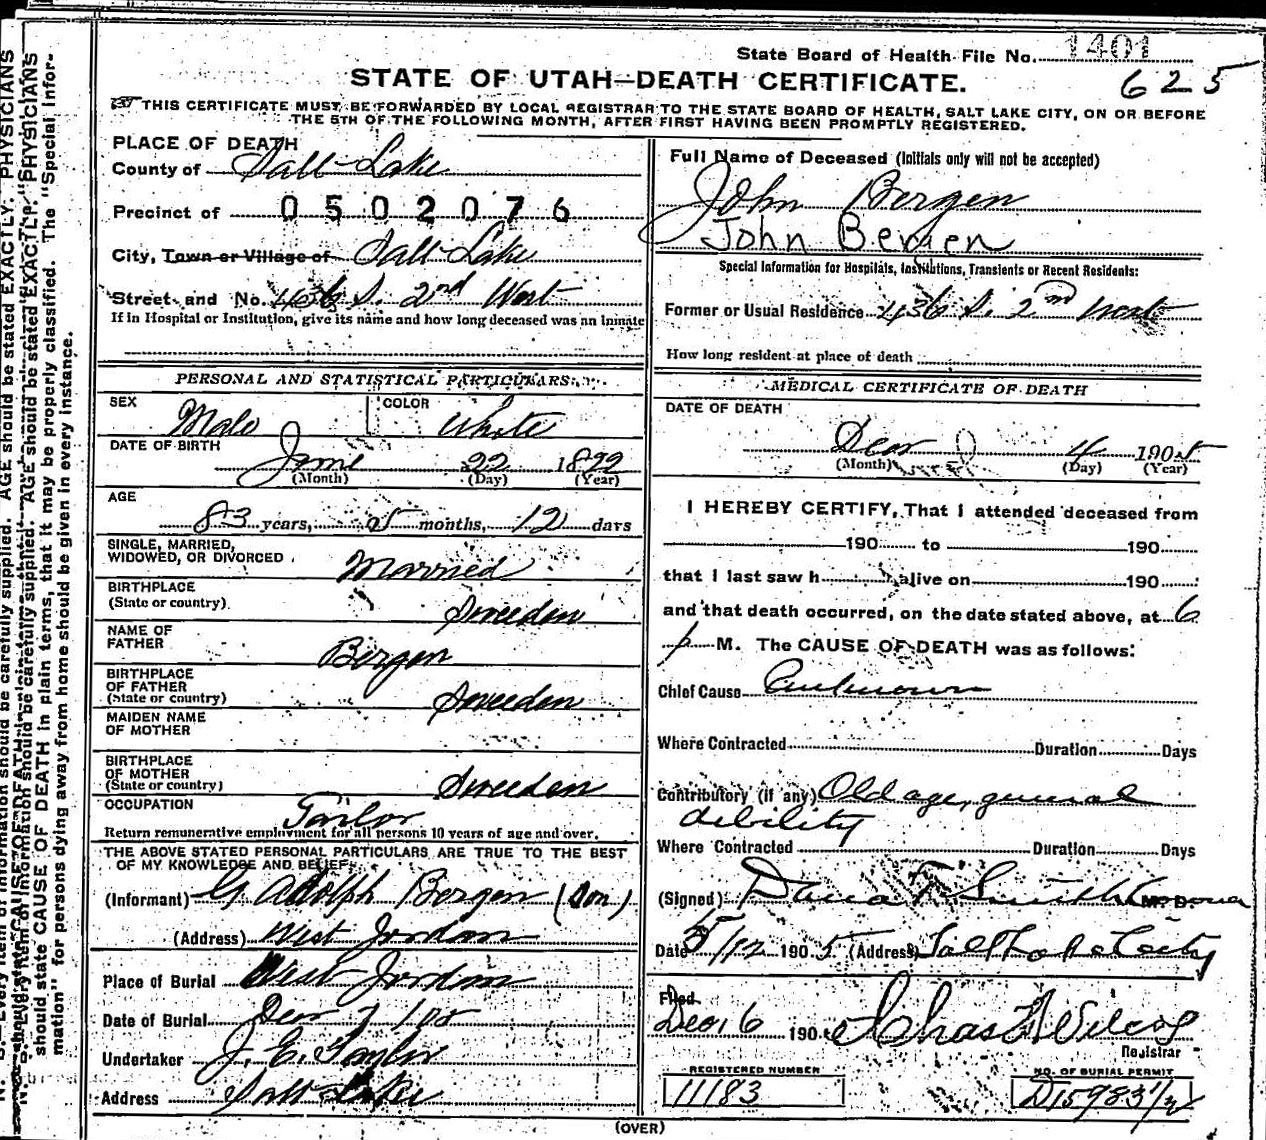 State Board of Health File No. 1401
625
STATE OF UTAH—DEATH CERTIFICATE.
THIS CERTIFICATE MUST BE FORWARDED BY LOCAL REGISTRAR TO THE STATE BOARD OF HEALTH, SALT LAKE CITY, ON OR BEFORE
THE 5TH OF THE FOLLOWING MONTH, AFTER FIRST HAVING BEEN PROMPTLY REGISTERED.
PLACE OF DEATH
County of Salt Lake
Precinct of 0502076
City, Town or Village of Salt Lake
Street and No. 436 S. 2nd West
If in Hospital or Institution, give its name and how long deceased was an inmate
PERSONAL AND STATISTICAL PARTICULARS
SEX Male COLOR White
DATE OF BIRTH
June 22 1822
(Month) (Day) (Year)
AGE
83 years, 5 months, 12 days
SINGLE, MARRIED,
WIDOWED, OR DIVORCED Married
BIRTHPLACE
(State or country) Sweeden
NAME OF
FATHER Bergen
BIRTHPLACE
OF FATHER
(State or country) Sweeden
MAIDEN NAME
OF MOTHER
BIRTHPLACE
OF MOTHER
(State or country) Sweeden
OCCUPATION Tailor
Return remunerative employment for all persons 10 years of age and over.
THE ABOVE STATED PERSONAL PARTICULARS ARE TRUE TO THE BEST
OF MY KNOWLEDGE AND BELIEF
(Informant) G Adolph Bergen (Son)
(Address) West Jordan
Place of Burial West Jordan
Date of Burial Decr 7 1905
Undertaker J. E. Taylor
Address Salt Lake
Full Name of Deceased (Initials only will not be accepted)
John Bergen
John Bergen
Special Information for Hospitals, Institutions, Transients or Recent Residents:
Former or Usual Residence 436 S. 2nd West
How long resident at place of death
MEDICAL CERTIFICATE OF DEATH
DATE OF DEATH
Decr 4 1905
(Month) (Day) (Year)
I HEREBY CERTIFY, That I attended deceased from
190 to 190
that I last saw h alive on 190
and that death occurred, on the date stated above, at 6
p M. The CAUSE OF DEATH was as follows:
Chief Cause Unknown
Where Contracted Duration Days
Contributory (if any) Old age, general
debility
Where Contracted Duration Days
(Signed) Dana T Smith M. D.
Date 5/12 1905 (Address) Salt Lake City
Filed
Dec. 6 190 Chas F Wilcox
Registrar
REGISTERED NUMBER
11183
NO. OF BURIAL PERMIT
D15983 1/2
(OVER)
AGE should be stated EXACTLY. PHYSICIANS
should state CAUSE OF DEATH in plain terms, that it may be properly classified. The "Special Infor-
mation" for persons dying away from home should be given in every instance.